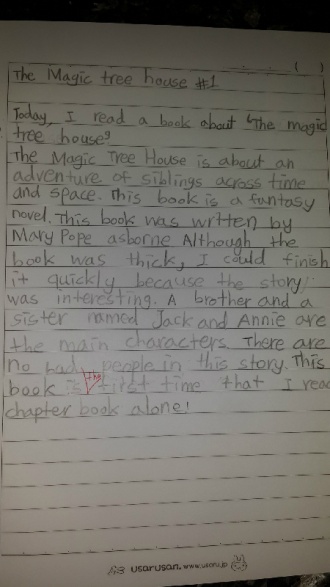 ( )
The Magic tree house #1
Today, I read a book about "The magic
tree house"
The Magic Tree House is about an
adventure of siblings across time
and space. This book is a fantasy
novel. This book was wrtten by
Mary Pope asborne Although the
book was thick, I could finish
it quickly because the story
was interesting. A brother and a
sister named Jack and Annie are
the main characters. There are
no bad people in this story. This
book is the first time that I read
chapter book alone!
usarusan. www.usaru.jp